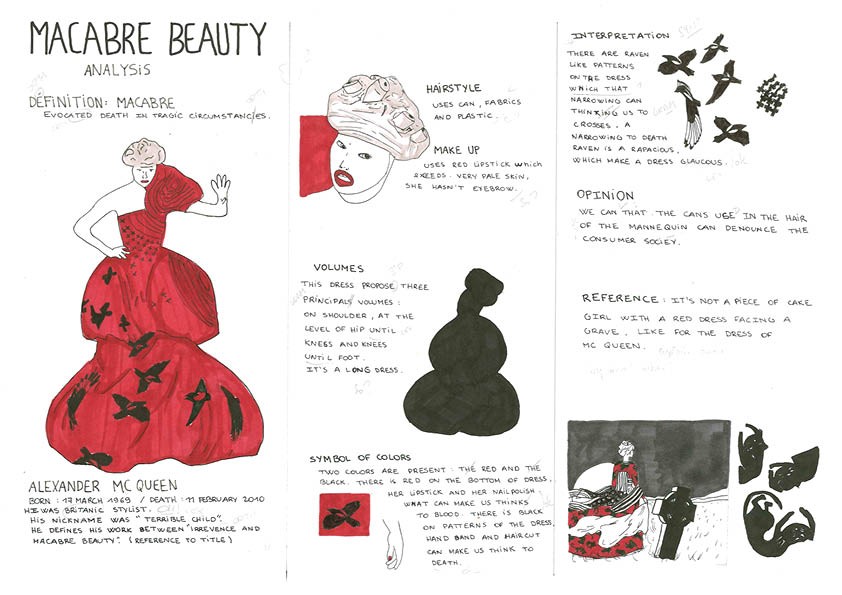 MACABRE BEAUTY
ANALYSIS
DÉFINITION: MACABRE
EVOCATED DEATH IN TRAGIC CIRCUMSTANCIES.
ALEXANDER MC QUEEN
BORN : 17 MARCH 1969 / DEATH : 11 FEBRUARY 2010
HE WAS BRITANIC STYLIST.
HIS NICKNAME WAS "TERRIBLE CHILD".
HE DEFINES HIS WORK BETWEEN "IRREVENCE AND
MACABRE BEAUTY". (REFERENCE TO TITLE)
HAIRSTYLE
USES CAN, FABRICS
AND PLASTIC.
MAKE UP
USES RED LIPSTICK WHICH
EXCEEDS. VERY PALE SKIN,
SHE HASN'T EYEBROW.
VOLUMES
THIS DRESS PROPOSE THREE
PRINCIPALS VOLUMES :
ON SHOULDER, AT THE
LEVEL OF HIP UNTIL
KNEES AND KNEES
UNTIL FOOT.
IT'S A LONG DRESS.
SYMBOL OF COLORS
TWO COLORS ARE PRESENT : THE RED AND THE
BLACK. THERE IS RED ON THE BOTTOM OF DRESS,
HER LIPSTICK AND HER NAILPOLISH
WHAT CAN MAKE US THINKS
TO BLOOD. THERE IS BLACK
ON PATTERNS OF THE DRESS,
HAND BAND AND HAIRCUT
CAN MAKE US THINK TO
DEATH.
INTERPRETATION
THERE ARE RAVEN
LIKE PATTERNS
ON THE DRESS
WHICH THAT
NARROWING CAN
THINKING US TO
CROSSES. A
NARROWING TO DEATH
RAVEN IS A RAPACIOUS,
WHICH MAKE A DRESS GLAUCOUS.
OPINION
WE CAN THAT THE CANS USE IN THE HAIR
OF THE MANNEQUIN CAN DENOUNCE THE
CONSUMER SOCIEY.
REFERENCE : IT'S NOT A PIECE OF CAKE
GIRL WITH A RED DRESS FACING A
GRAVE, LIKE FOR THE DRESS OF
MC QUEEN.